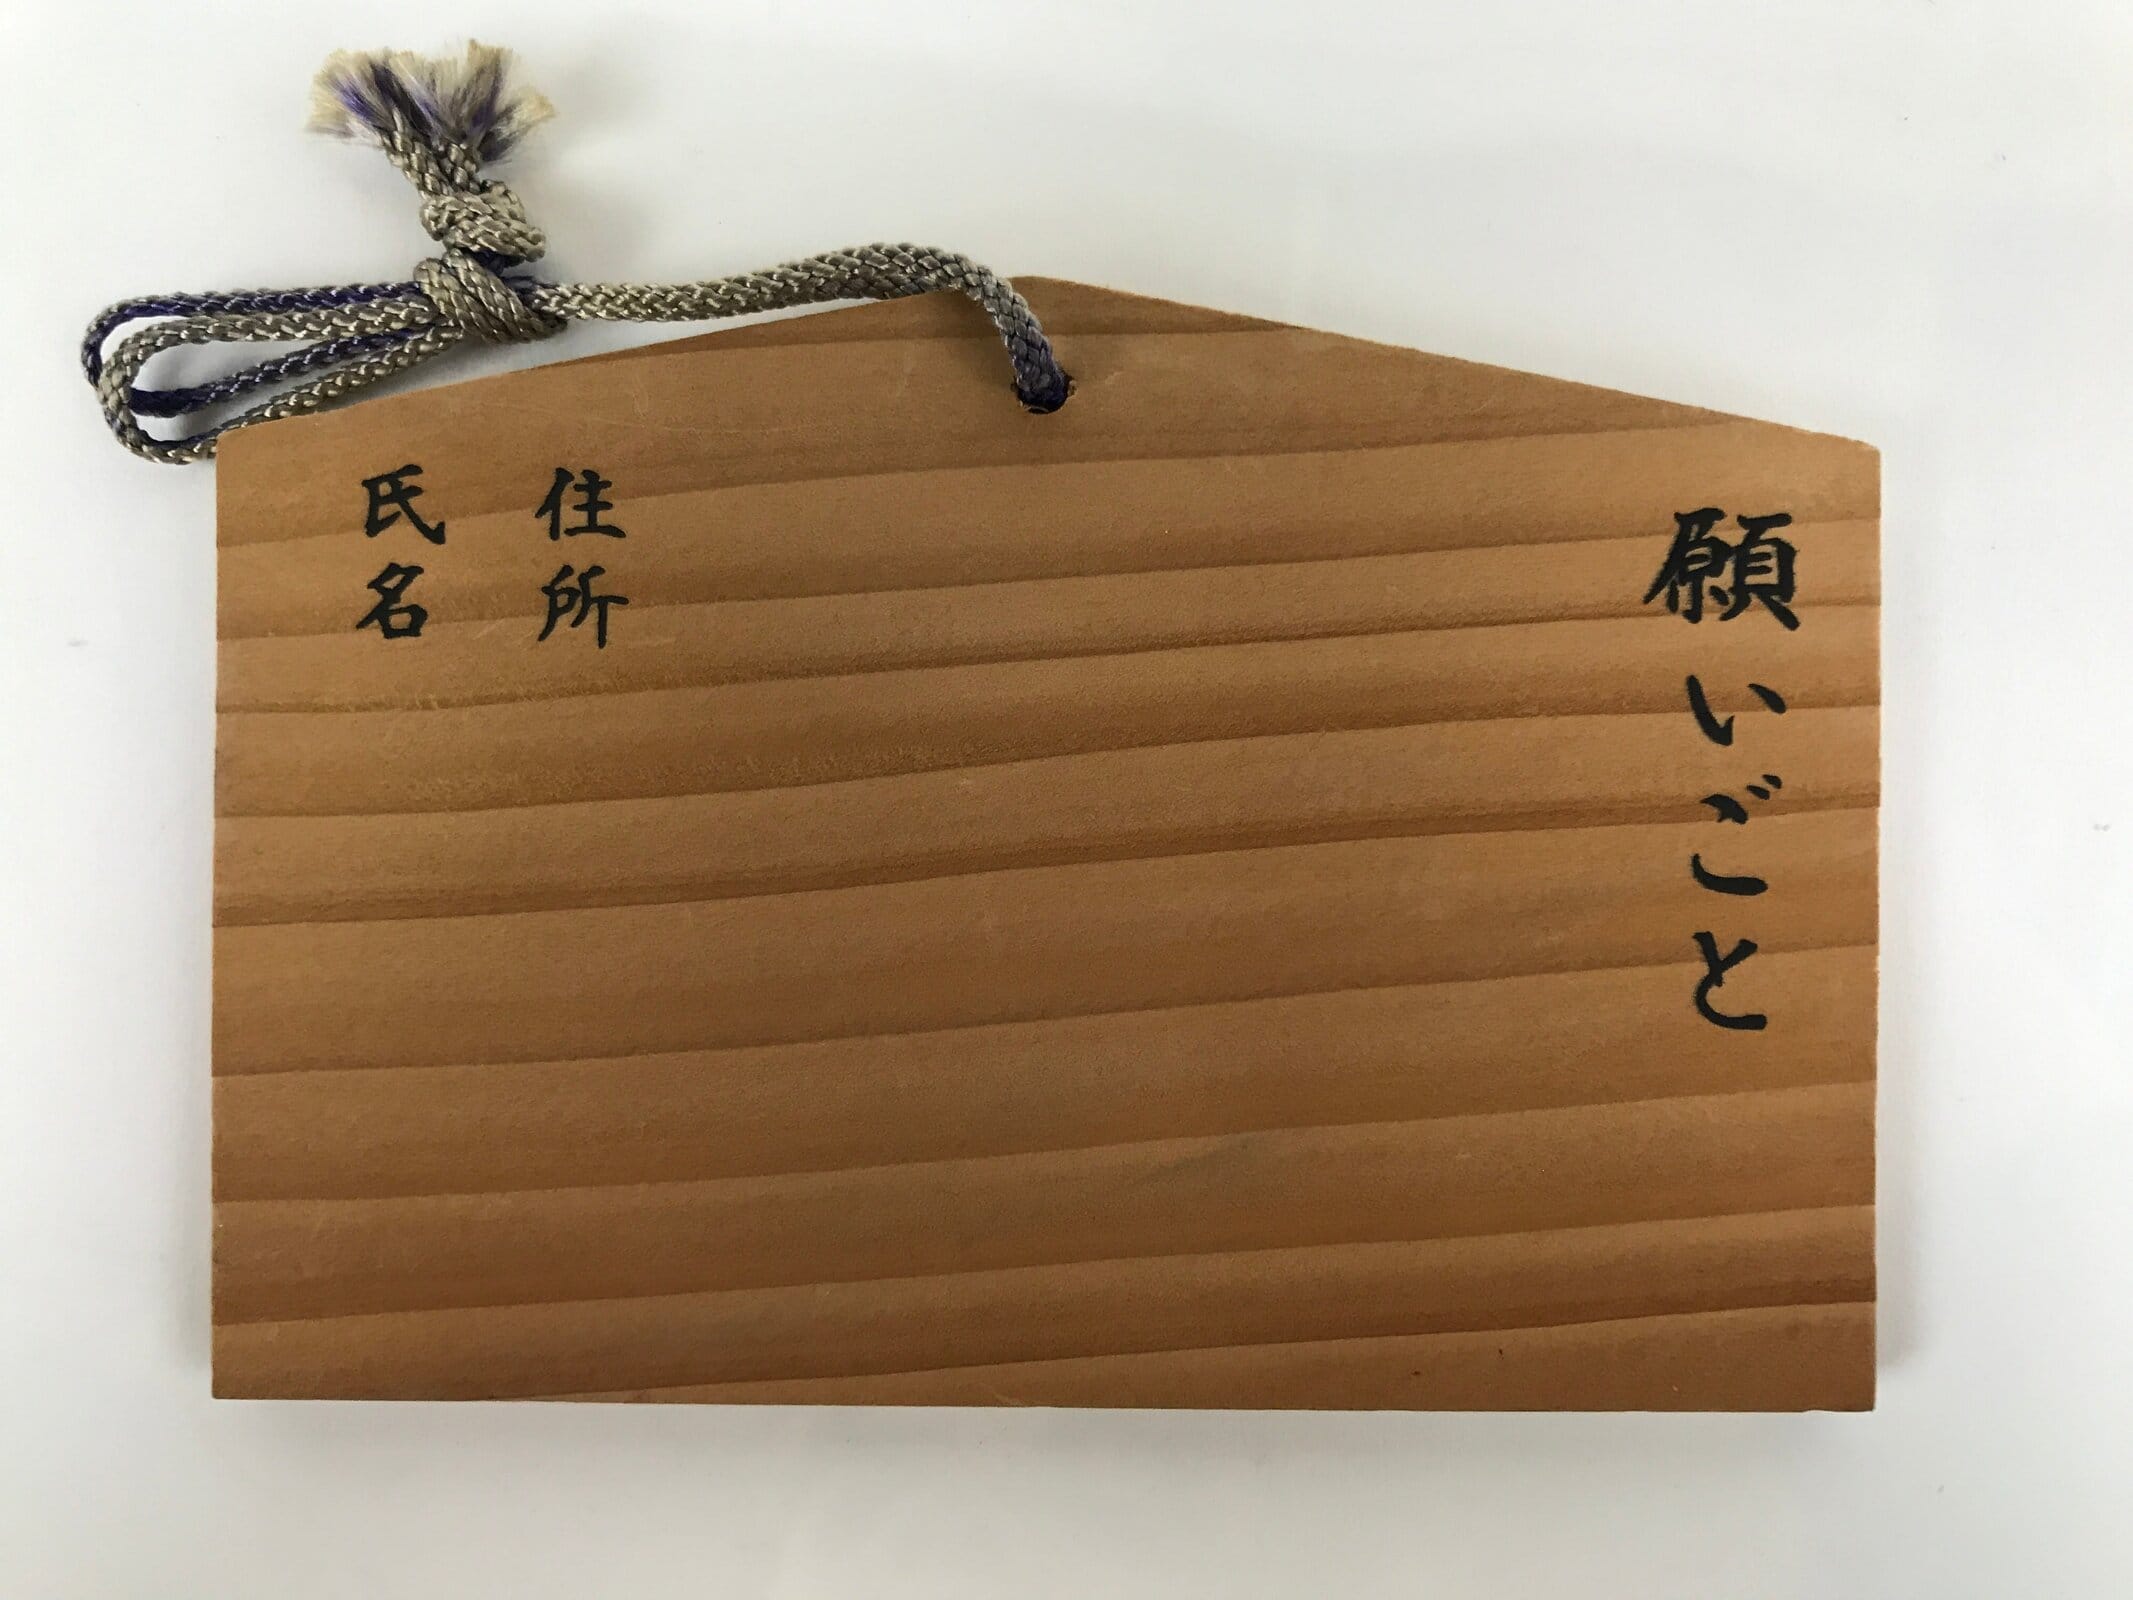 願いごと
住所
氏名